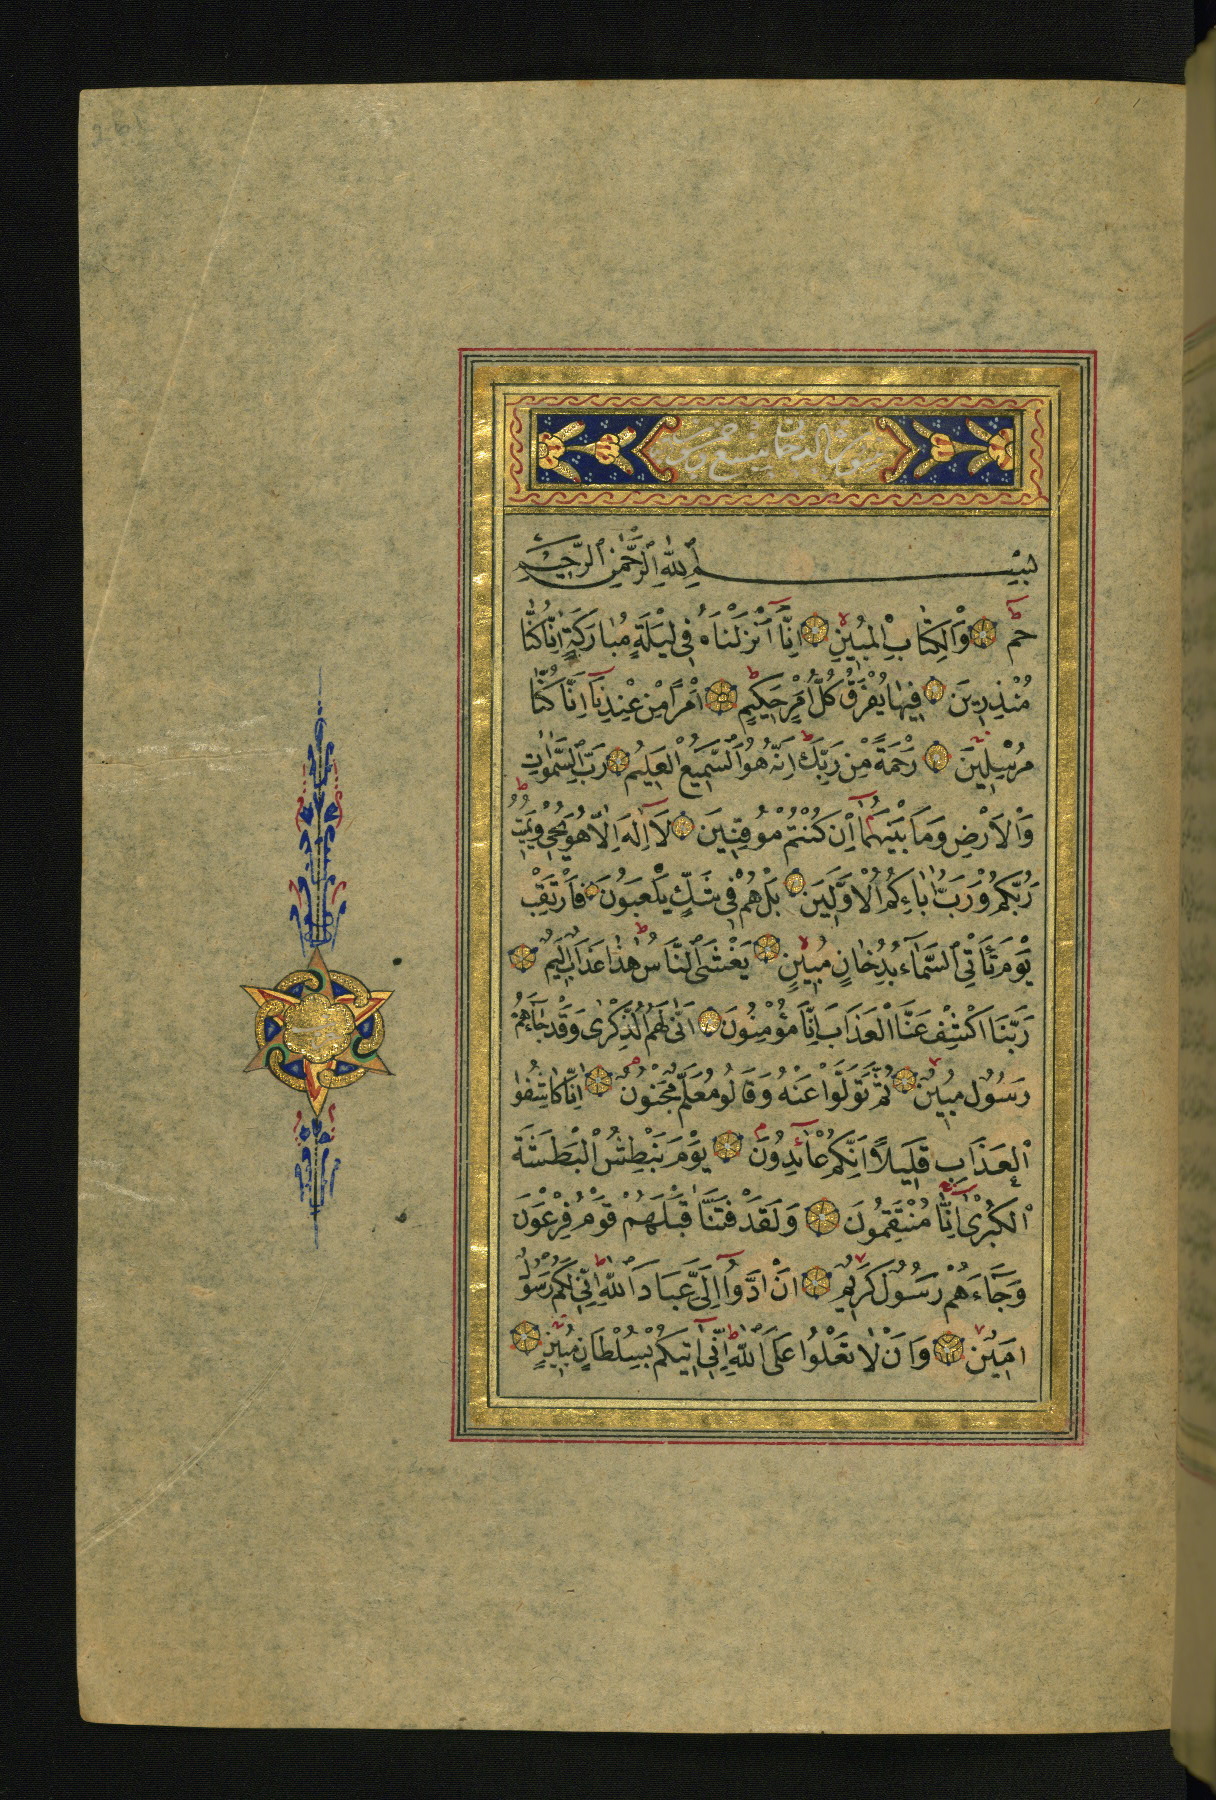 سورة الدخان تسع وخمسون
بسم الله الرحمن الرحيم
حٰمٓ وَالْكِتَابِ الْمُبِينِ اِنَّآ اَنْزَلْنَاهُ فِي لَيْلَةٍ مُبَارَكَةٍ اِنَّا كُنَّا
مُنْذِرِينَ فِيهَا يُفْرَقُ كُلُّ اَمْرٍ حَكِيمٍ اَمْرًا مِنْ عِنْدِنَآ اِنَّا كُنَّا
مُرْسِلِينَ رَحْمَةً مِنْ رَبِّكَ اِنَّهُ هُوَ السَّمِيعُ الْعَلِيمُ رَبِّ السَّمٰوَاتِ
وَالْاَرْضِ وَمَا بَيْنَهُمَآ اِنْ كُنْتُمْ مُوقِنِينَ لَآ اِلٰهَ اِلَّا هُوَ يُحْيِي وَيُمِيتُ
رَبُّكُمْ وَرَبُّ اٰبَاءِكُمُ الْاَوَّلِينَ بَلْ هُمْ فِي شَكٍّ يَلْعَبُونَ فَارْتَقِبْ
يَوْمَ تَأْتِي السَّمَآءُ بِدُخَانٍ مُبِينٍ يَغْشَى النَّاسَ هٰذَا عَذَابٌ اَلِيمٌ
رَبَّنَا اكْشِفْ عَنَّا الْعَذَابَ اِنَّا مُؤْمِنُونَ اَنّٰى لَهُمُ الذِّكْرٰى وَقَدْ جَآءَهُمْ
رَسُولٌ مُبِينٌ ثُمَّ تَوَلَّوْا عَنْهُ وَقَالُوا مُعَلَّمٌ مَجْنُونٌ اِنَّا كَاشِفُوا
الْعَذَابِ قَلِيلًا اِنَّكُمْ عَآئِدُونَ يَوْمَ نَبْطِشُ الْبَطْشَةَ
الْكُبْرٰى اِنَّا مُنْتَقِمُونَ وَلَقَدْ فَتَنَّا قَبْلَهُمْ قَوْمَ فِرْعَوْنَ
وَجَآءَهُمْ رَسُولٌ كَرِيمٌ اَنْ اَدُّوآ اِلَيَّ عِبَادَ اللّٰهِ اِنِّي لَكُمْ رَسُولٌ
اَمِينٌ وَاَنْ لَا تَعْلُوا عَلَى اللّٰهِ اِنِّيٓ اٰتِيكُمْ بِسُلْطَانٍ مُبِينٍ